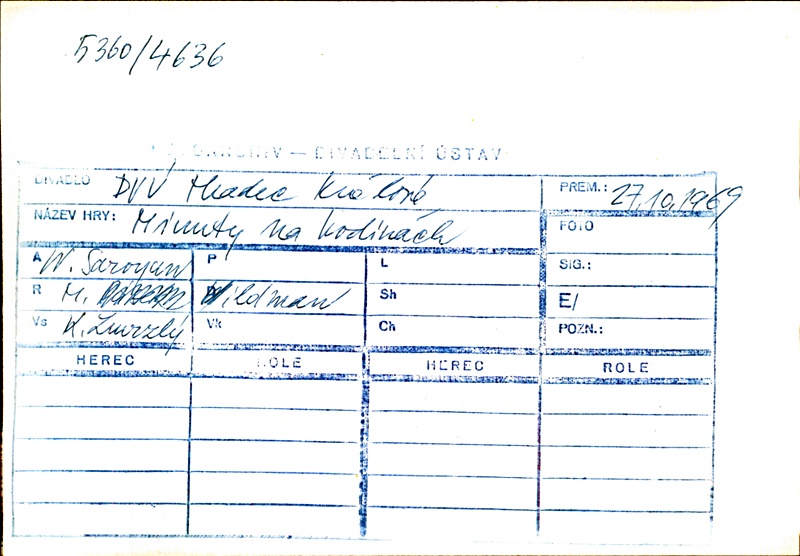 5360/4636
DIVADELNÍ ÚSTAV
DIVADLO DVÚ Hradec Králové
PREM.: 27.10.1969
NÁZEV HRY: Minuty na hodinách
FOTO
A W. Saroyan P L SIG.:
R M. Wildman Sh E/
Vs K. Zmrzlý Vk Ch POZN.:
HEREC ROLE HEREC ROLE